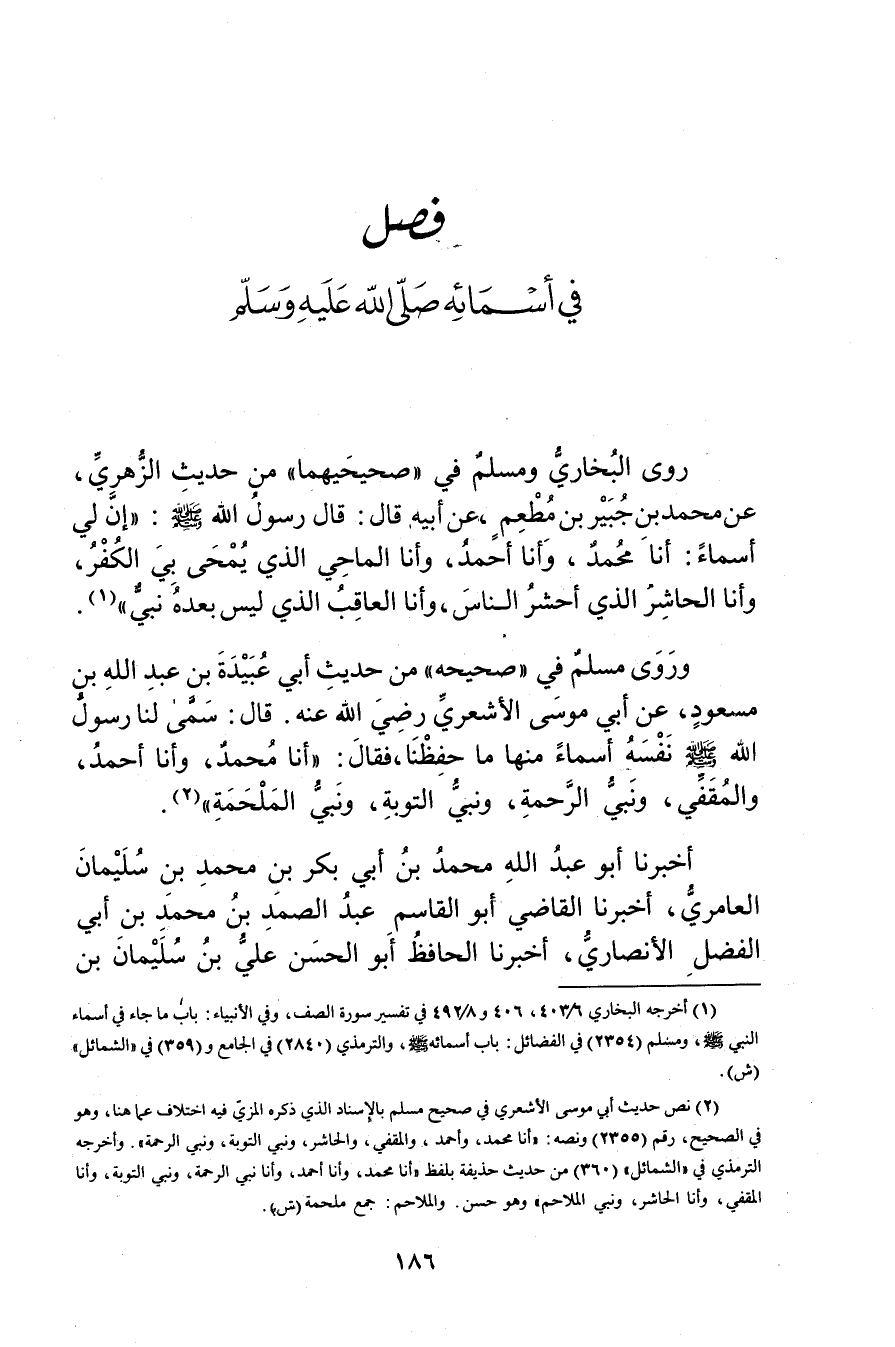 فصل
في أسمائه صَلّى الله عَلَيهِ وَسَلّم
روى البُخاريُّ ومسلمٌ في «صحيحَيهما» من حديثِ الزُّهريِّ،
عن محمد بن جُبَيْر بن مُطْعِمٍ، عن أبيه قال: قال رسولُ الله ﷺ : «إنَّ لي
أسماءً: أنا محُمدٌ ، وَأنا أحمدُ، وأنا الماحِي الذي يُمْحَى بِيَ الكُفْرُ،
وأنا الحاشِرُ الذي أحشرُ الـناسَ، وأنا العاقِبُ الذي ليس بعدهُ نبيٌّ»(١).
ورَوَى مسلمٌ في «صحيحه» من حديثِ أبي عُبَيْدَةَ بن عبدِ اللهِ بنِ
مسعودٍ، عن أبي موسَى الأشعريِّ رضِيَ الله عنه. قال: سَمَّىٰ لنا رسولُ
الله ﷺ نَفْسَهُ أسماءً منها ما حفِظْنَا، فقالَ: «أنا مُحمدٌ، وأنا أحمدُ،
والمُقَفِّي، ونَبيُّ الرَّحمةِ، ونبيُّ التوبةِ، ونَبيُّ المَلْحَمَةِ»(٢).
أخبرنا أبو عبدُ اللهِ محمدُ بنُ أبي بكر بنِ محمدِ بن سُلَيْمانَ
العامريُّ، أخبرنا القاضي أبو القاسم عبدُ الصمدِ بنُ محمدِ بن أبي
الفضل الأنصاريُّ، أخبرنا الحافظُ أبو الحسَن عليُّ بنُ سُلَيْمانَ بن
(١) أخرجه البخاري ٤٠٣/٦، ٤٠٦ و٤٩٢/٨ في تفسير سورة الصف، وفي الأنبياء: باب ما جاء في أسماء
النبي ﷺ، ومسلم (٢٣٥٤) في الفضائل: باب أسمائه ﷺ، والترمذي (٢٨٤٠) في الجامع و(٣٥٩) في «الشمائل»
(ش).
(٢) نص حديث أبي موسى الأشعري في صحيح مسلم بالإسناد الذي ذكره المزيّ فيه اختلاف عما هنا، وهو
في الصحيح، رقم (٢٣٥٥) ونصه: «أنا محمد، وأحمد ، والمقفي، والحاشر، ونبي التوبة، ونبي الرحمة». وأخرجه
الترمذي في «الشمائل» (٣٦٠) من حديث حذيفة بلفظ «أنا محمد، وأنا أحمد، وأنا نبي الرحمة، ونبي التوبة، وأنا
المقفي، وأنا الحاشر، ونبي الملاحم» وهو حسن. والملاحم: جمع ملحمة (ش).
١٨٦